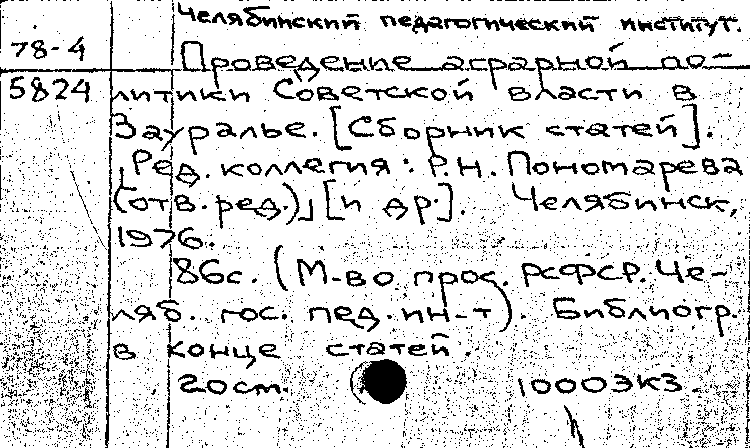 Челябинский педагогический институт.
78-4 Проведение аграрной по-
5824 литики Советской власти в
Зауралье. [Сборник статей].
„Ред. коллегия: Р.Н. Пономарева
(отв. ред.)„ [и др.]. Челябинск,
1976.
86с. (М-во прос. РСФСР. Че-
ляб. гос. пед. ин-т). Библиогр.
в конце статей.
20см. 1000экз.